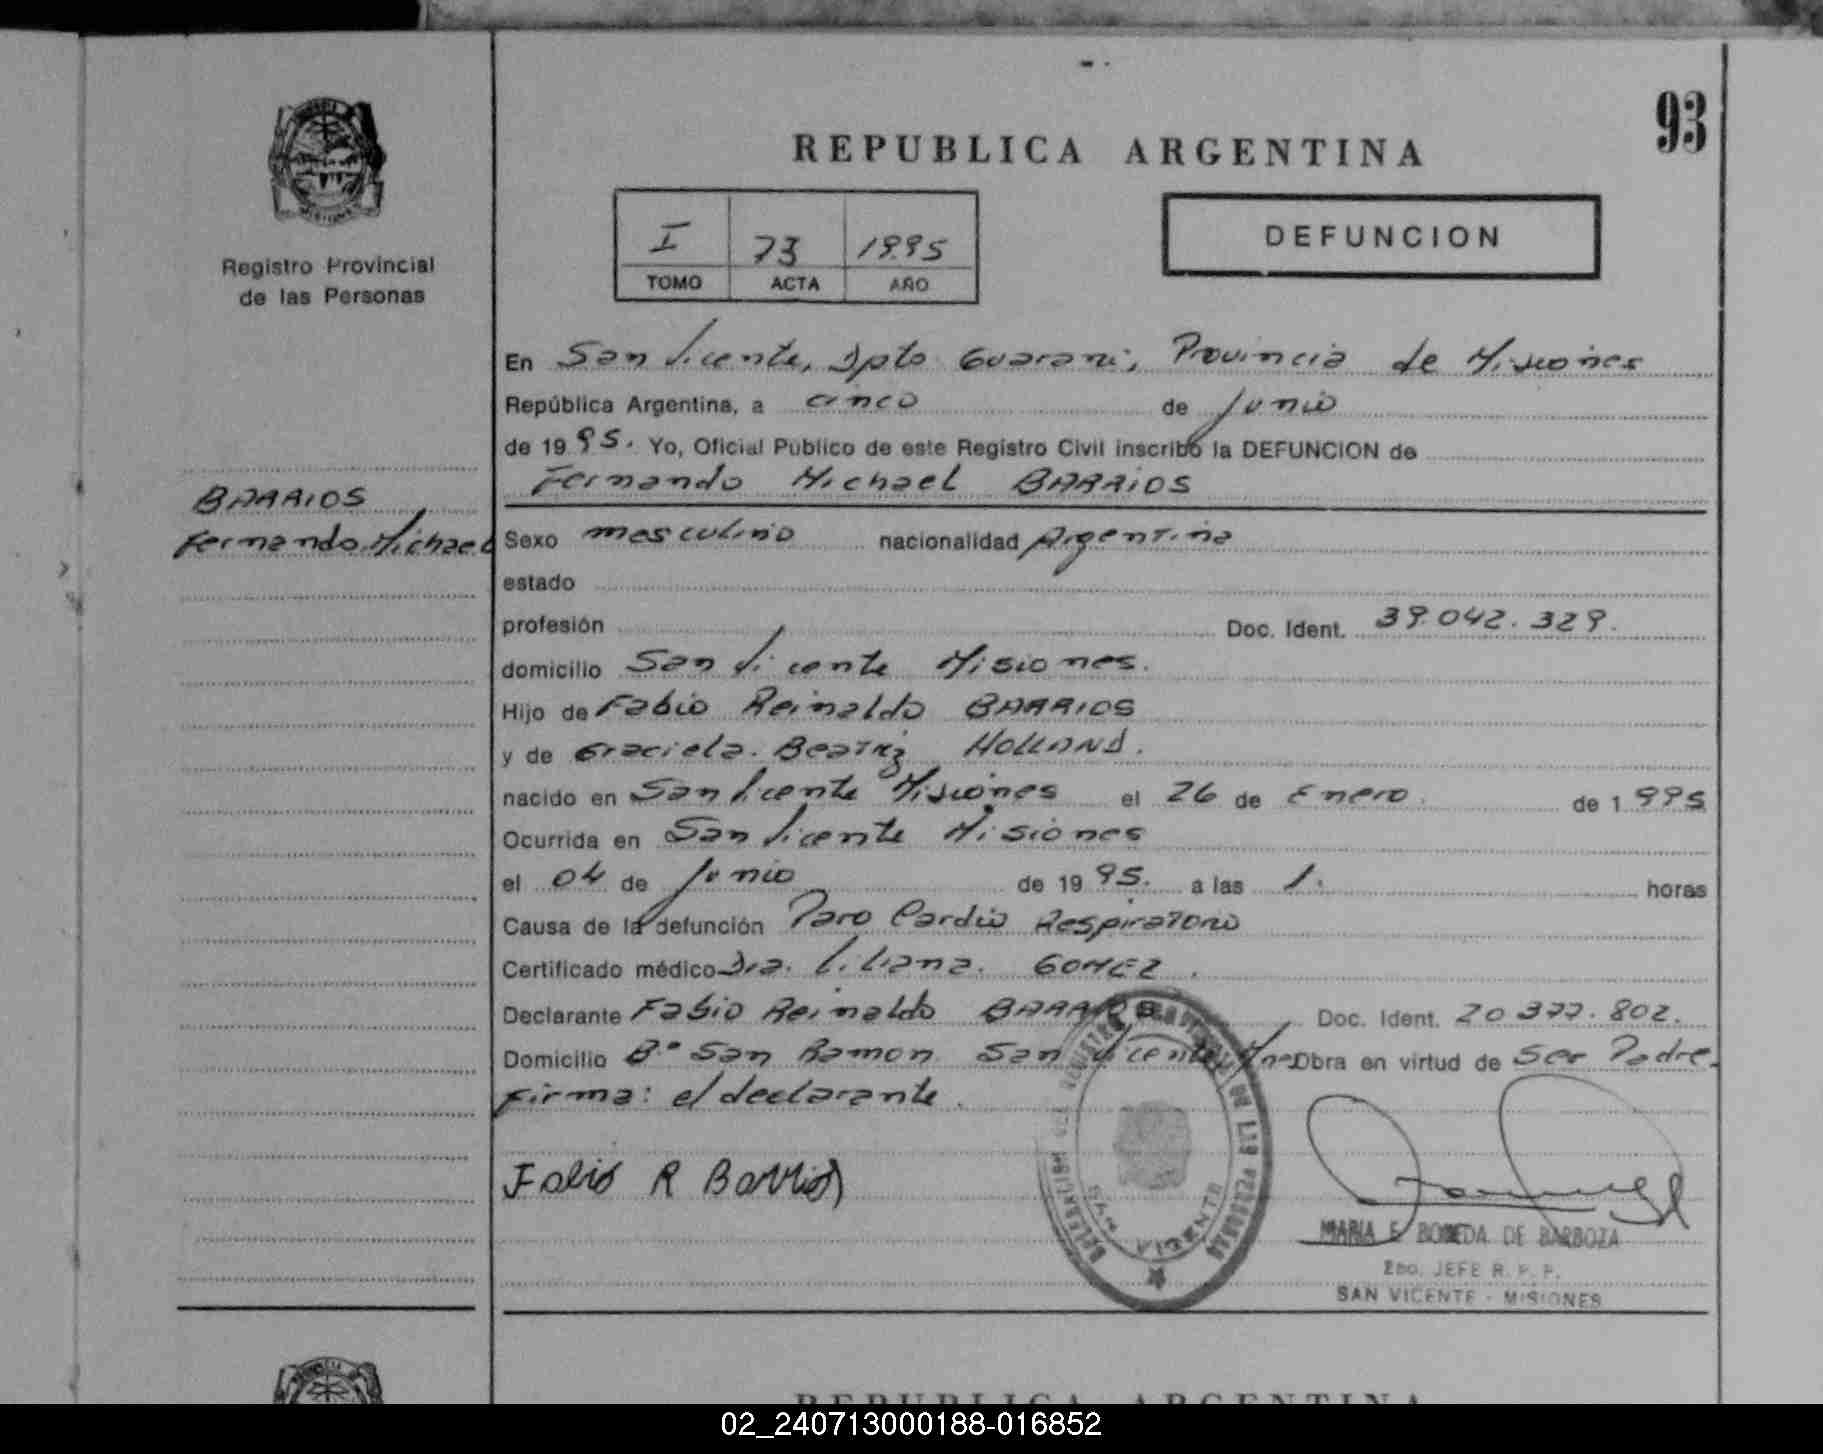 93
REPUBLICA ARGENTINA
I 73 1995
TOMO ACTA AÑO
DEFUNCION
Registro Provincial
de las Personas
BARRIOS
Fernando Michael
En San Vicente, Dpto Guarani, Provincia de Misiones
República Argentina, a cinco de Junio
de 1995. Yo, Oficial Público de este Registro Civil inscribo la DEFUNCION de
Fernando Michael BARRIOS
Sexo masculino nacionalidad Argentina
estado
profesión Doc. Ident. 39.042.329.
domicilio San Vicente Misiones.
Hijo de Fabio Reinaldo BARRIOS
y de Graciela Beatriz HOLLAND.
nacido en San Vicente Misiones el 26 de Enero de 1995
Ocurrida en San Vicente Misiones
el 04 de Junio de 1995. a las 1. horas
Causa de la defunción Paro Cardio Respiratorio
Certificado médico Dra. Liliana GOMEZ.
Declarante Fabio Reinaldo BARRIOS Doc. Ident. 20377.802.
Domicilio Bº San Ramon San Vicente Mnes Obra en virtud de Ser Padre.
Firma: el declarante.
Fabio R Barrios
DELEGACION DEL REGISTRO PROVINCIAL DE LAS PERSONAS
SAN VICENTE
MARIA E. BOVEDA DE BARBOZA
2do. JEFE R. P. P.
SAN VICENTE - MISIONES
REPUBLICA ARGENTINA
02_240713000188-016852